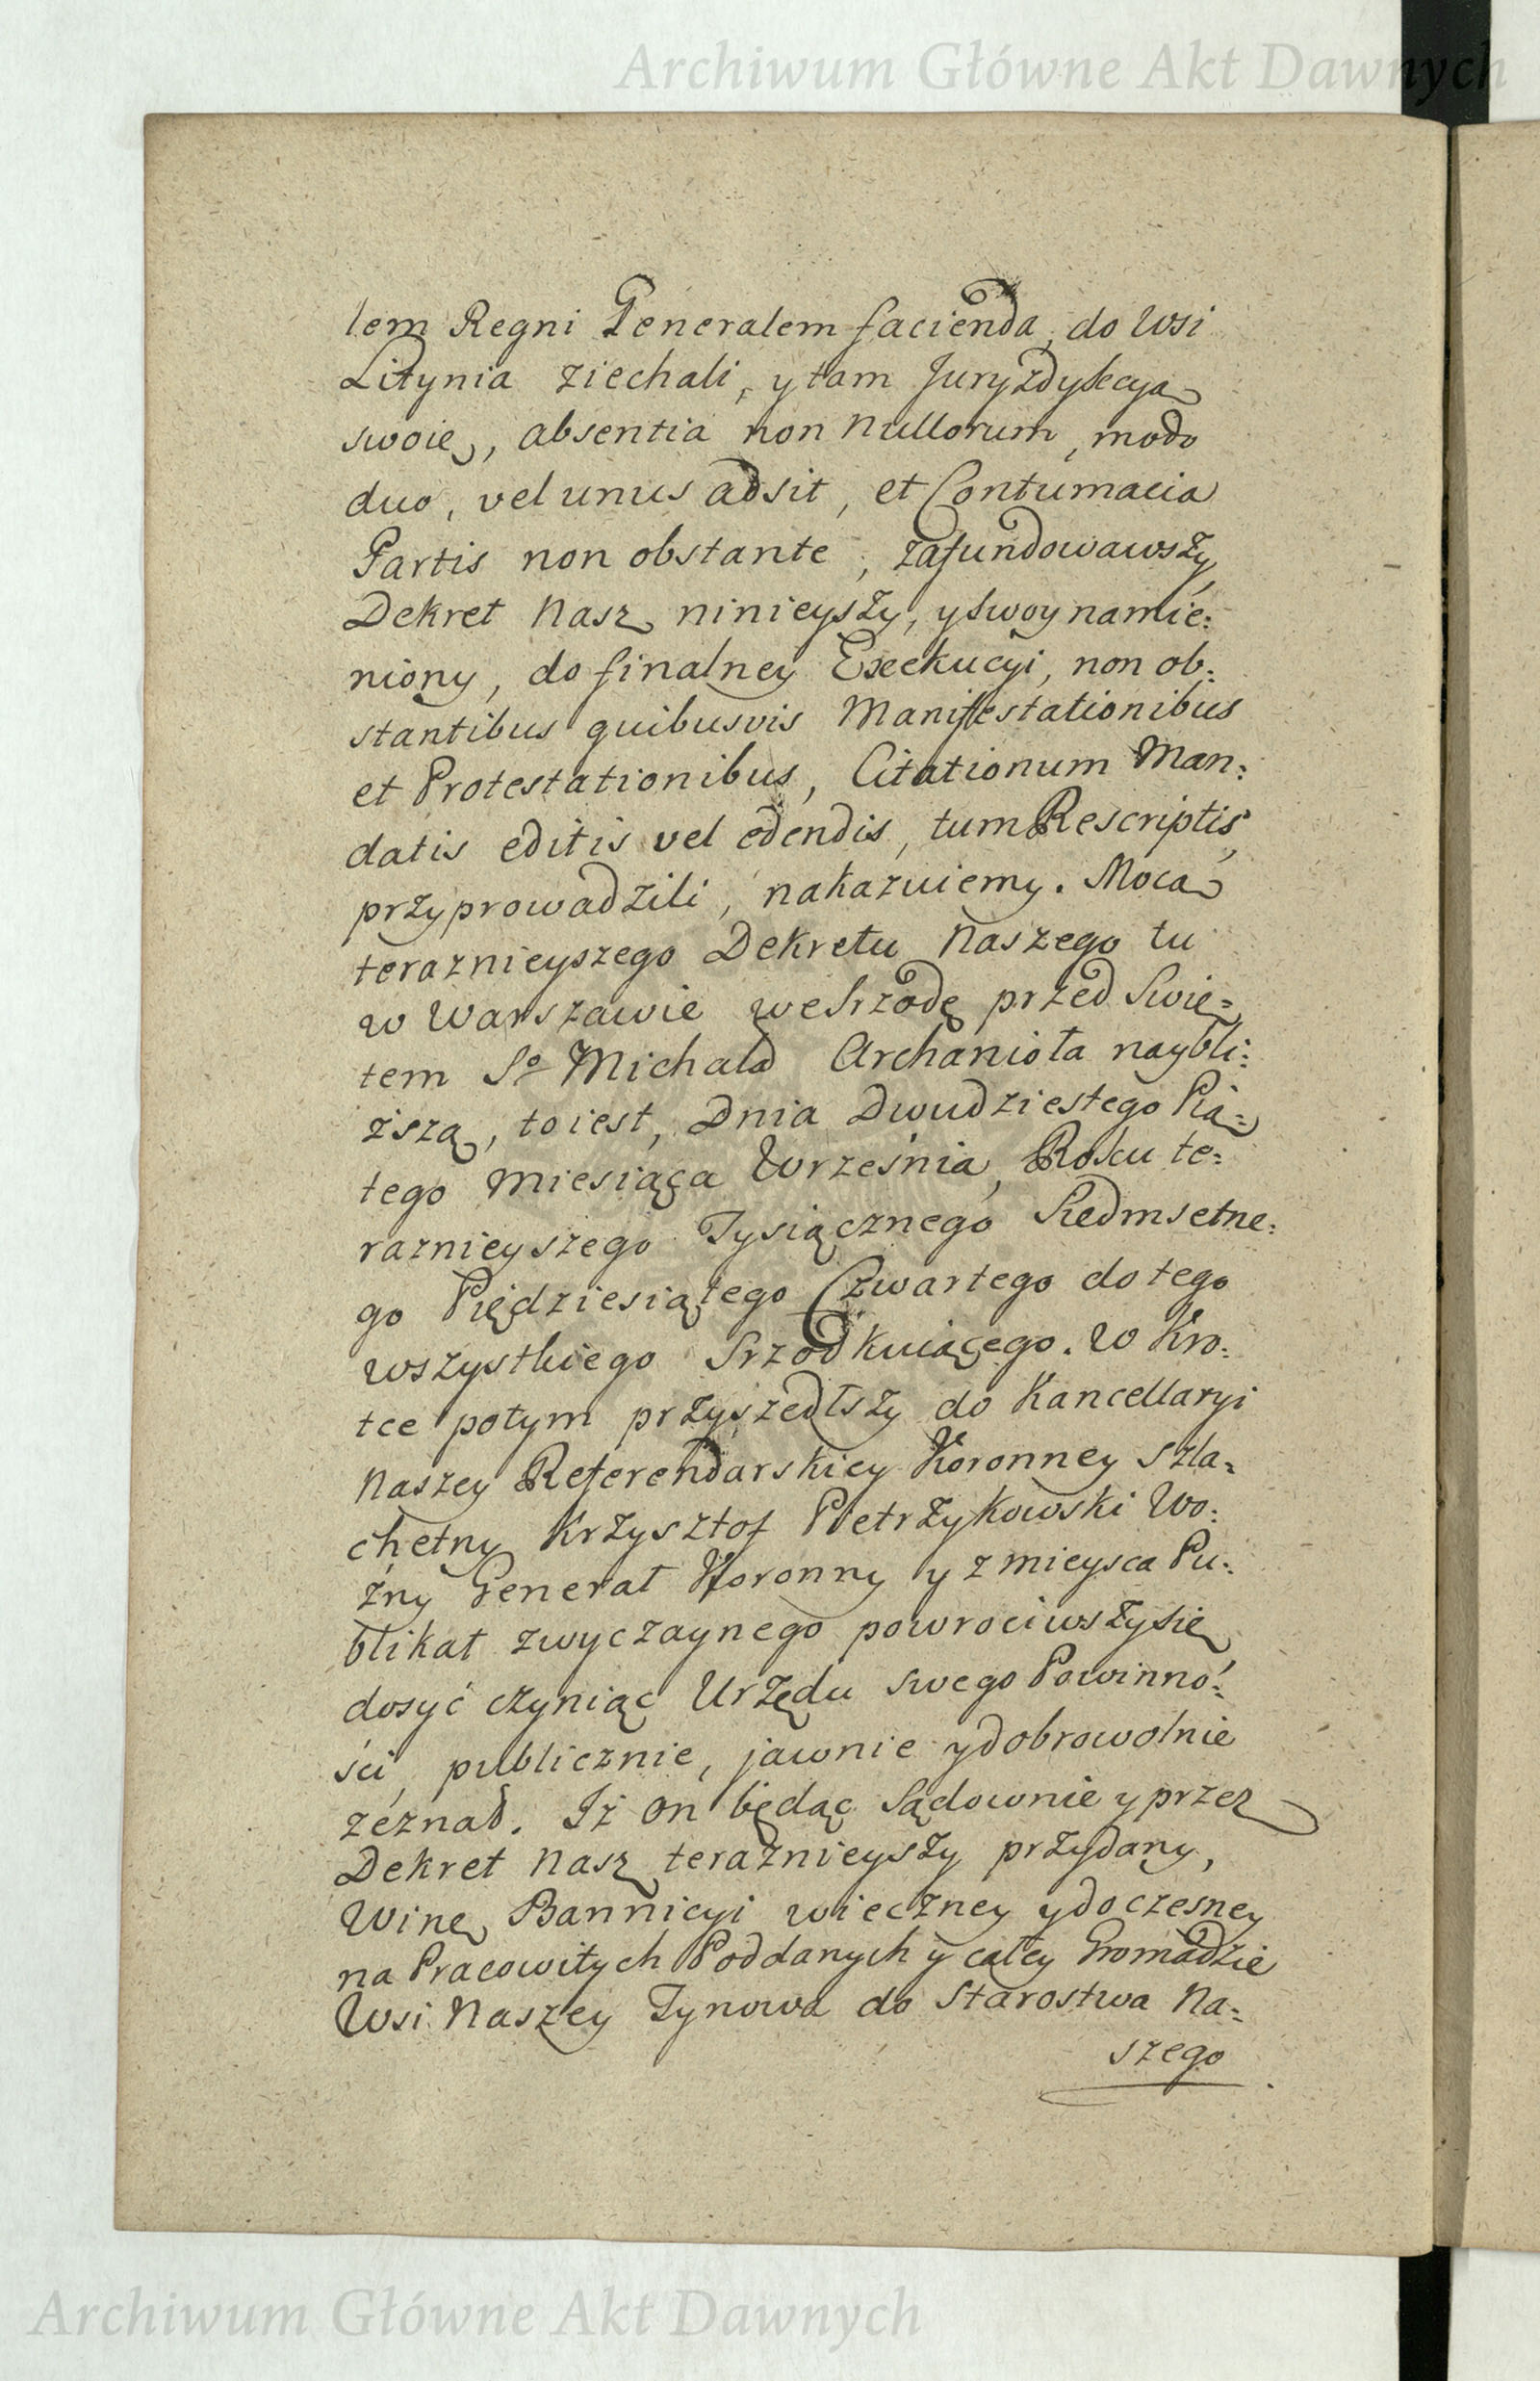 Archiwum Główne Akt Dawnych
lem Regni Generalem facienda, do Wsi
Litynia ziechali, y tam Juryzdykcyą
swoię, absentia non nullorum, modo
duo, vel unus adsit, et Contumacia
Partis non obstante, zafundowawszy
Dekret Nasz ninieyszy, y swoy namie:
niony, do finalney Exekucyi, non ob:
stantibus quibusvis Manifestationibus
et Protestationibus, Citationum Man:
datis editis vel edendis, tum Rescriptis,
przyprowadzili, nakazuiemy. Mocą
teraznieyszego Dekretu Naszego tu
w Warszawie we Srzodę przed Swię=
tem So Michała Archanioła naybli:
ższą, to iest, Dnia Dwudziestego Pią=
tego Miesiąca Września, Roku te:
raznieyszego Tysiącznego Siedmsetne:
go Piędziesiątego Czwartego do tego
wszystkiego Srzodkuiącego. W Kro:
tce potym przyszedłszy do Kancellaryi
Naszey Referendarskiey Koronney Szla=
chetny Krzysztof Pietrzykowski Wo:
zny Generał Koronny y z mieysca Pu:
blikat zwyczaynego powrociwszy się
dosyć czyniąc Urzędu swego Powinno:
ści, publicznie, jawnie y dobrowolnie
zeznał. Iż On będąc Sądownie y przez
Dekret Nasz teraznieyszy przydany,
Winę Bannicyi wieczney y doczesney
na Pracowitych Poddanych y całey Gromadzie
Wsi Naszey Tynowa do Starostwa Na=
szego
Archiwum Główne Akt Dawnych